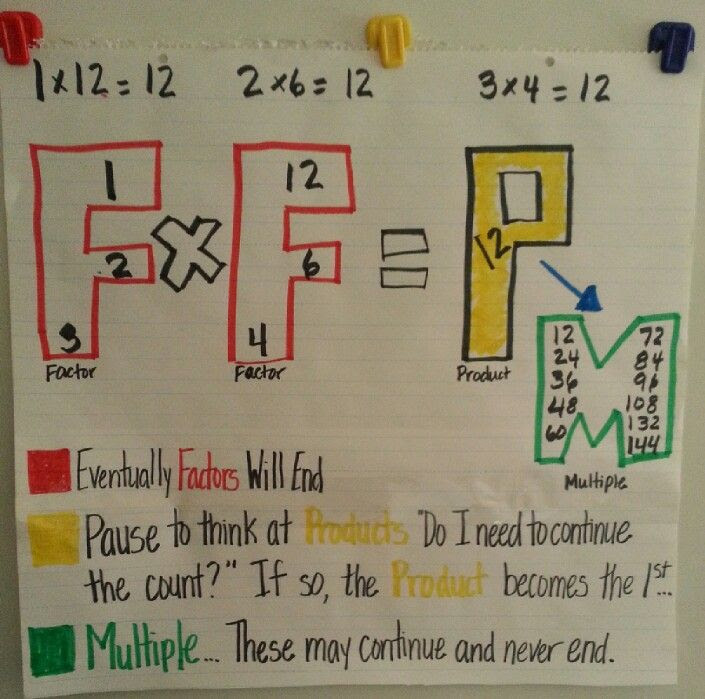 1 x 12 = 12 2 x 6 = 12 3 x 4 = 12
1 12
2 x 6 = 12
3 4
Factor Factor Product
12 72
24 84
36 96
48 108
60 132
144
Multiple
Eventually Factors Will End
Pause to think at Products "Do I need to continue
the count?" If so, the Product becomes the 1st...
Multiple... These may continue and never end.